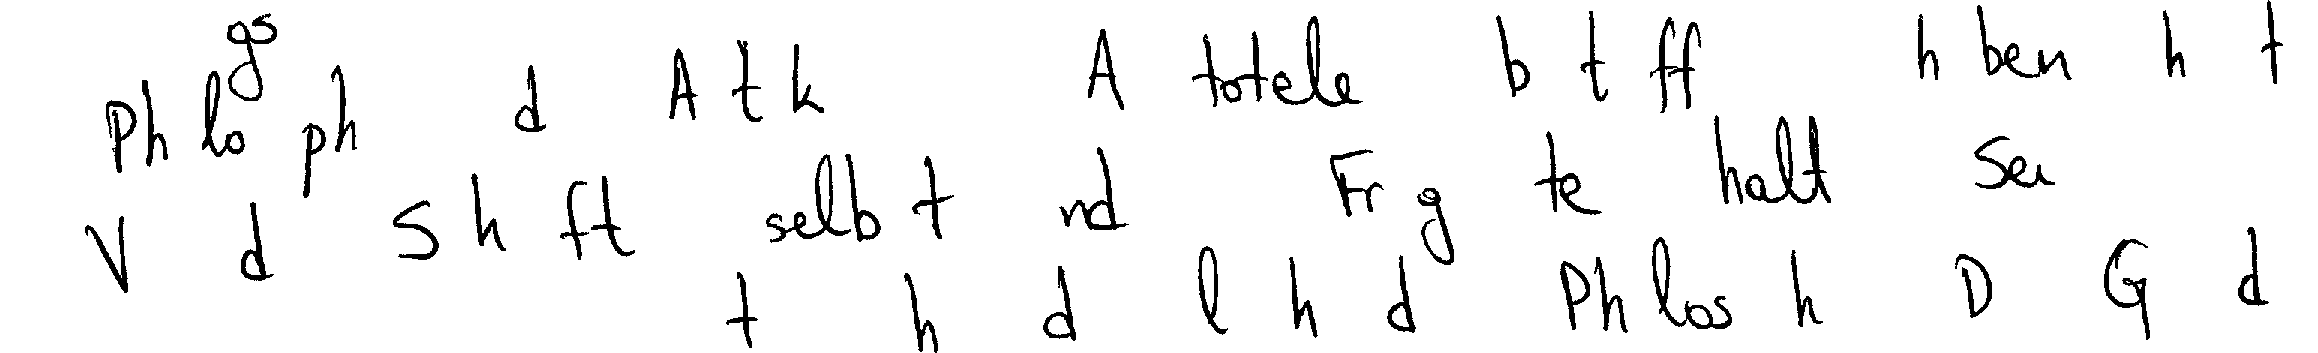 gs
Ph lo ph d A t k A totele b t ff h ben h t
V d S h ft selb t nd Fr g te halt Sei
t h d l h d Ph los h D G d